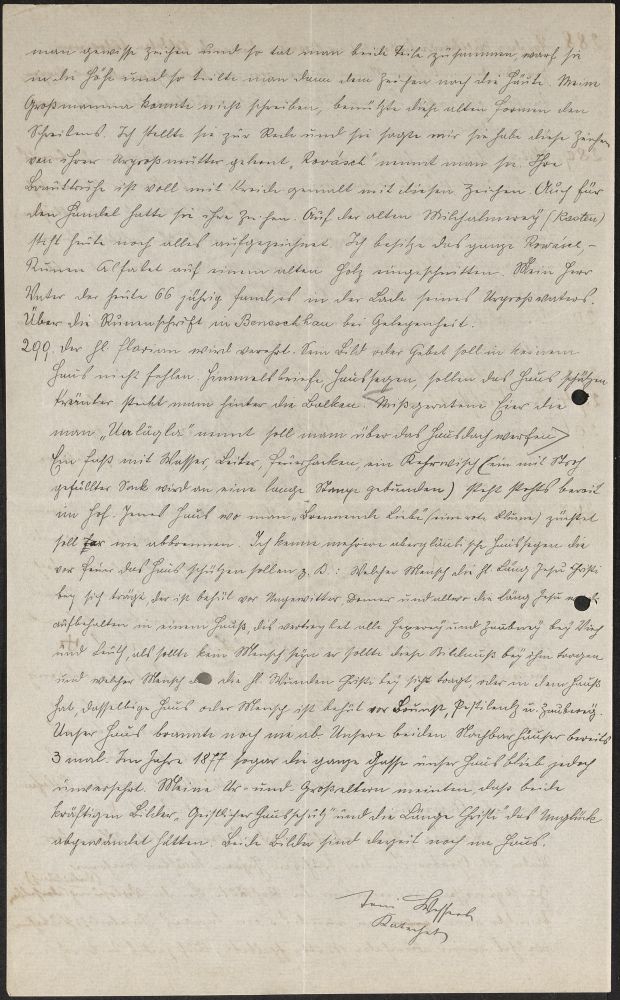 man gewisse Zeichen und so tat man beide Teile zusammen, warf sie
in die Höhe und so teilte man dann dem Zeichen nach die Häute. Meine
Großmamma konnte nicht schreiben, benützte diese alten Formen des
Schreibens. Ich stellte sie zur Rede und sie sagte mir sie habe diese Zeichen
von ihrer Urgroßmutter gelernt, "Rovásch" nennt man sie. Ihre
Brauttruhe ist voll mit Kreide gemalt mit diesen Zeichen. Auch für
den Handel hatte sie ihre Zeichen. Auf der alten (Kasten)
steht heute noch alles aufgezeichnet. Ich besitze das ganze
Runen Alfabet auf einem alten Holz eingeschnitten. Mein Herr
Vater der heute 66 jährig fand es in der Lade seines Urgroßvaters.
Über die Runenschrift in bei Gelegenheit.
299. Der hl. Florian wird verehrt. Sein Bild oder Gebet soll in keinem
Haus nicht fehlen. Himmelsbriefe, Haussegen, sollen das Haus schützen
Kräuter steckt man hinter die Balken. Mißgeratene Eier die
man nennt soll man über das Hausdach werfen
Ein Faß mit Wasser, Leiter, Feuerhacken, ein Kehrwisch (ein mit Stroh
gefüllter Sack wird an eine lange Stange gebunden) steht stehts bereit
im Hof. Jenes Haus wo man "Brennende Liebe (eine rote Blume) züchtet
soll nie abbrennen. Ich kenne mehrere abergläubische Haussegen die
vor Feuer das Haus schützen sollen z. B.: Welcher Mensch die hl. Läng Jesu Christi
bey sich trägt, der ist behüt vor Ungewitter, Donner und allwo die Läng Jesu
aufbehalten in einem Hauß, dis vertreybet alle Hexerey und Zauberey bey Viech
und Leuth, als sollte kein Mensch seyn er sollte diese Bildnuß bey ihm tragen
und welcher Mensch die hl. Wunden Christi bey sich tragt, oder in dem Hauß
hat, dasselbige Haus oder Mensch ist behüt vor Brunst, Pestilentz u. Zauberey.
Unser Haus brannte noch nie ab. Unsere beiden Nachbarhäuser bereits
3 mal. Im Jahre 1877 sogar die ganze Gasse unser Haus blieb jedoch
unversehrt. Meine Ur- und Großeltern meinten, daß beide
kräftigen Bilder, "Geistlicher Hausschutz" und die Länge Christi" das Unglück
abgewendet hätten. Beide Bilder sind derzeit noch im Haus.
Toni
Katechet